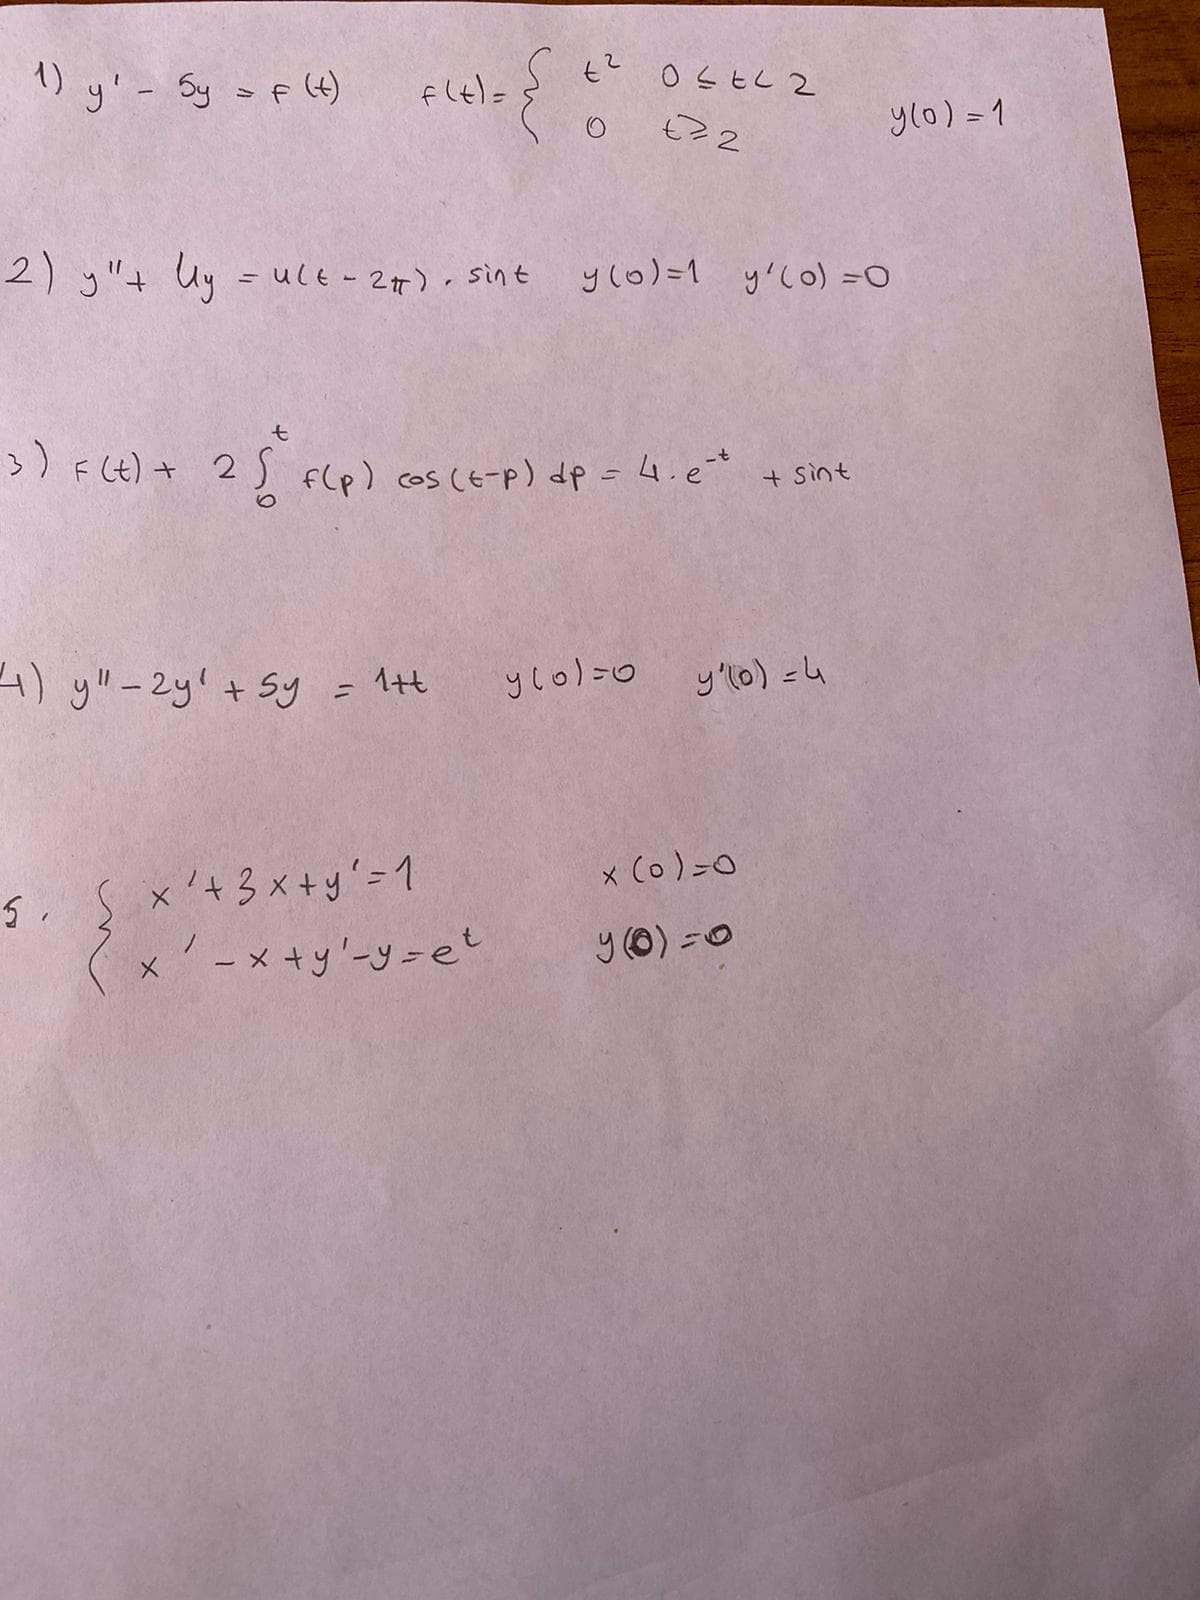 1) y' - 5y = f(t) f(t) = { t² 0 ≤ t < 2
0 t ≥ 2 y(0) = 1
2) y'' + 4y = u(t - 2π) . sint y(0)=1 y'(0) = 0
3) f(t) + 2 ∫₀ᵗ f(p) cos(t-p) dp = 4.e^-t + sint
4) y'' - 2y' + 5y = 1+t y(0)=0 y'(0) = 4
5. { x' + 3x + y' = 1 x(0)=0
x' - x + y' - y = e^t y(0) = 0